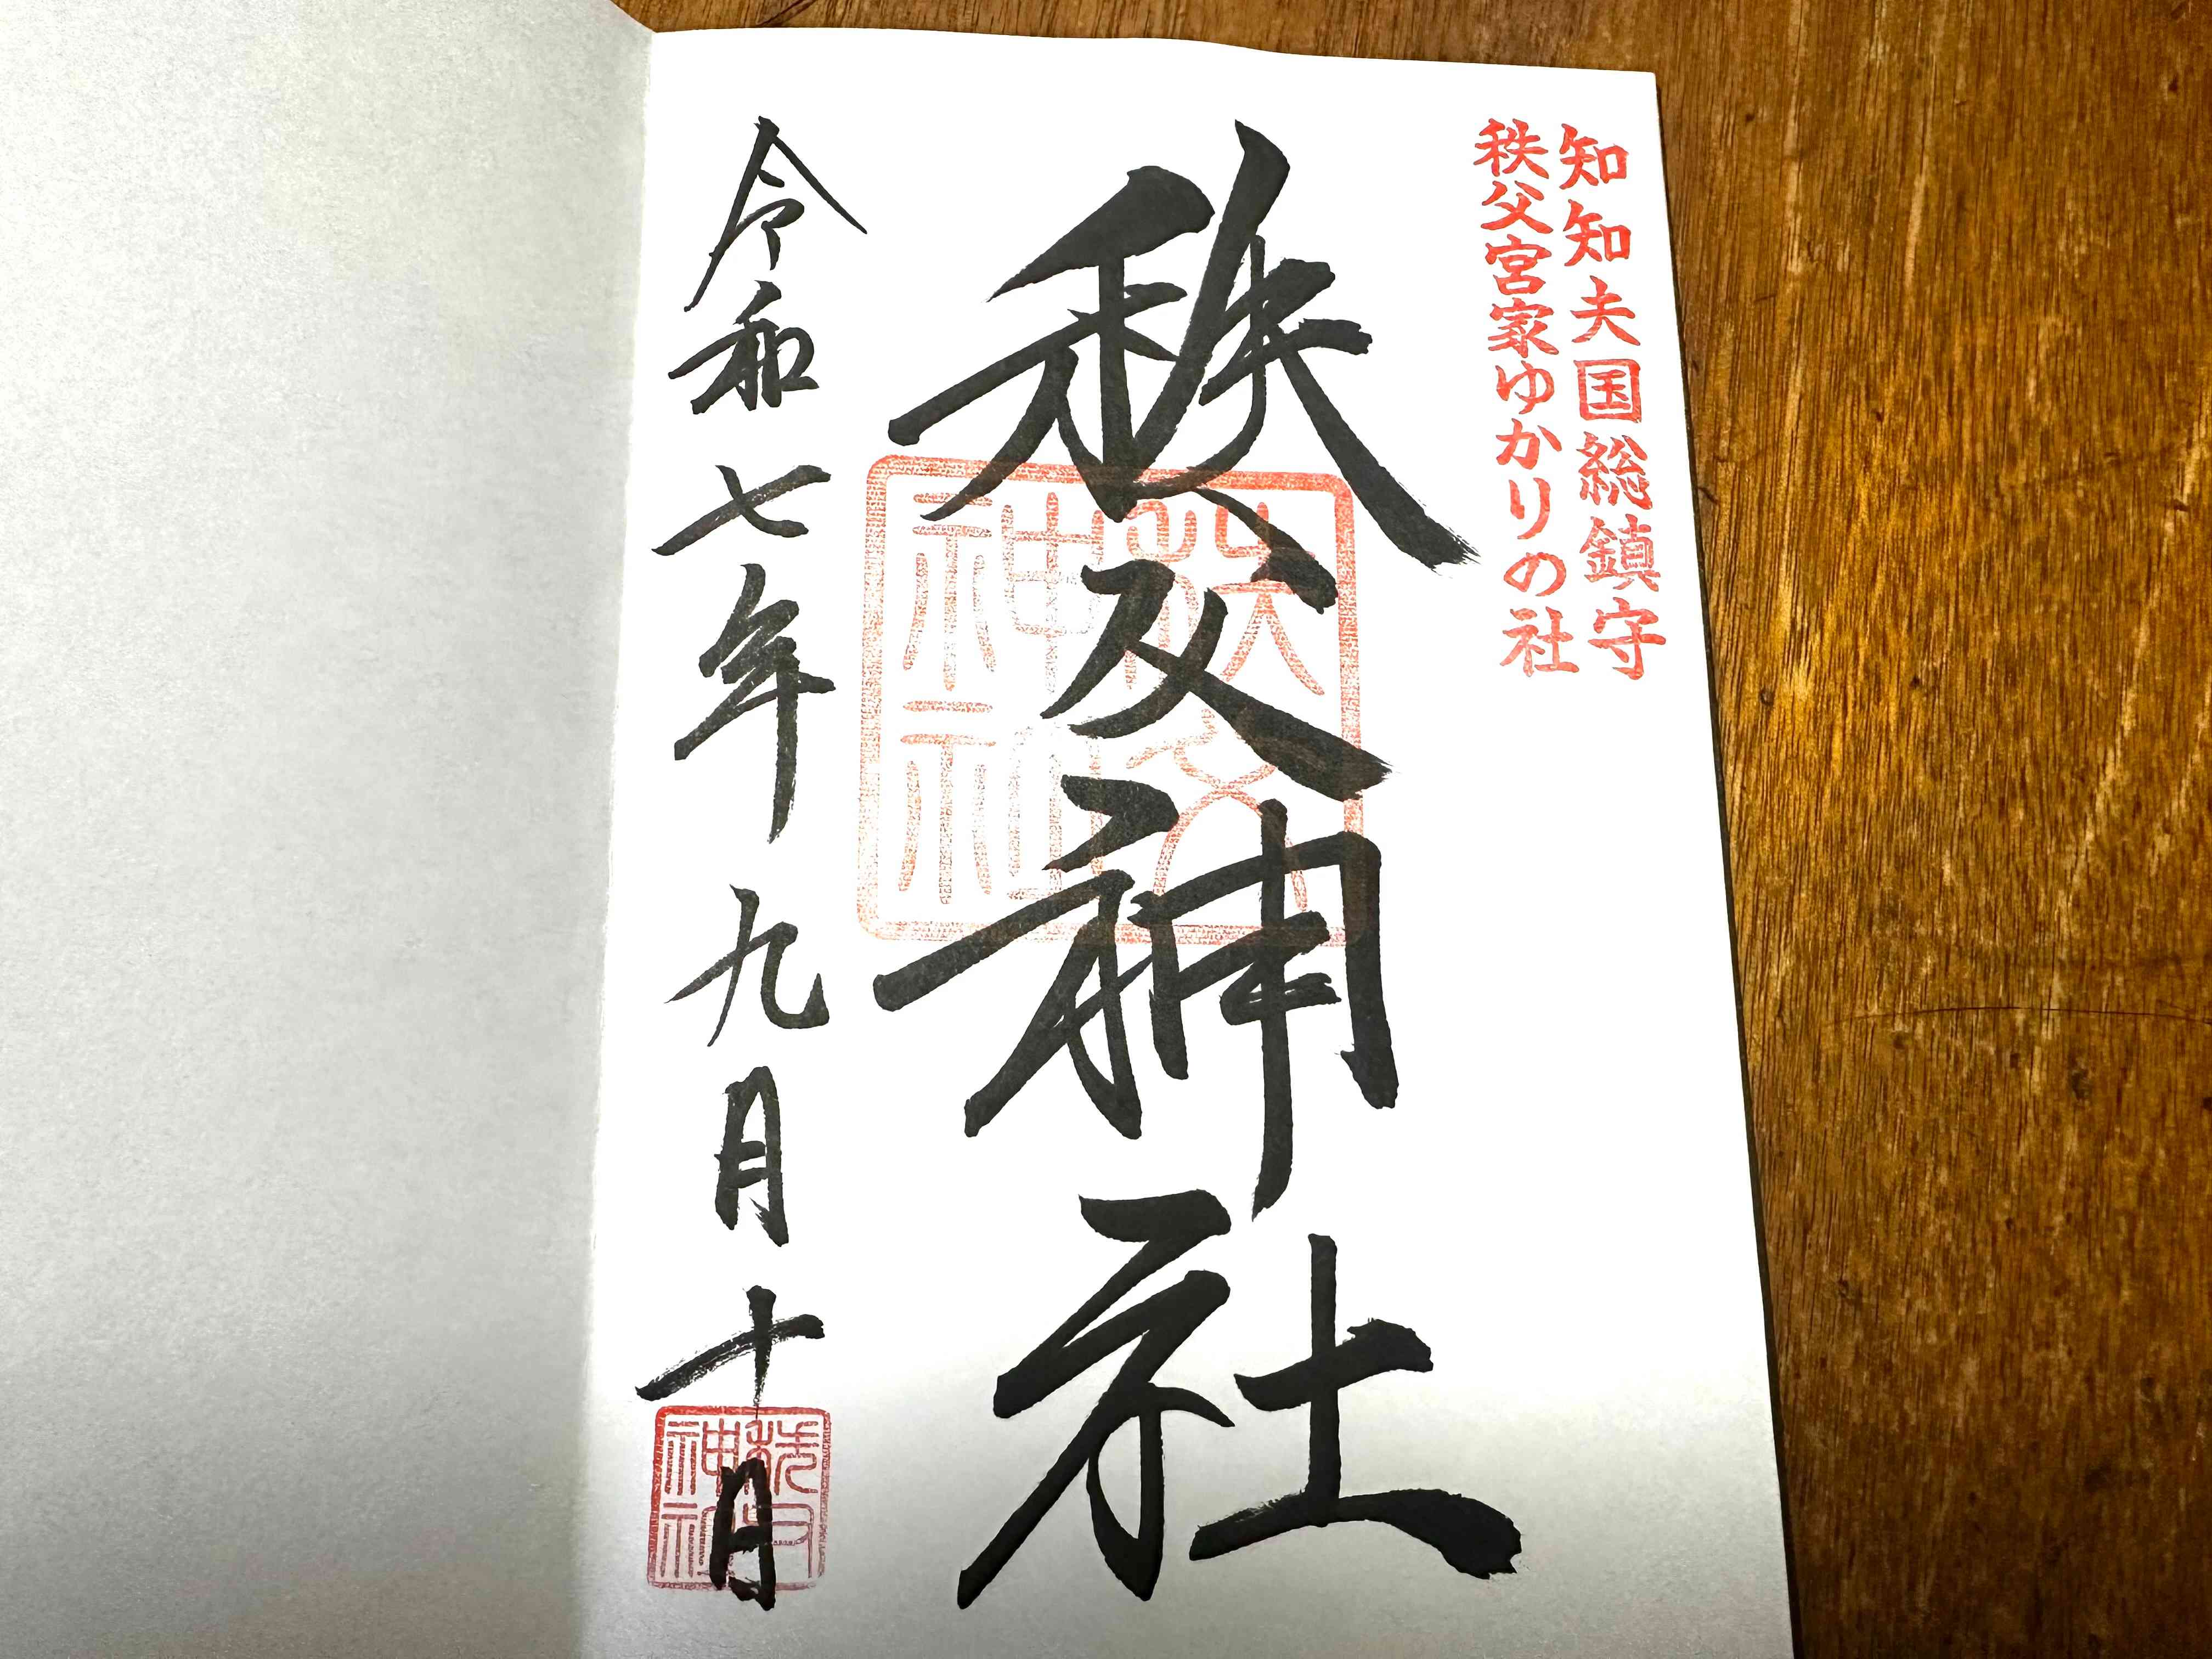 知知夫国総鎮守
秩父宮家ゆかりの社
秩父神社
秩父
神社
令和七年九月十日
秩父
神社